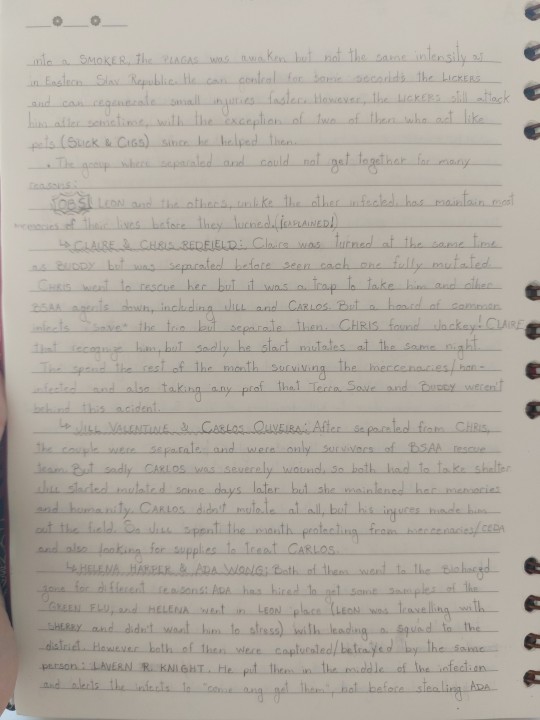 into a SMOKER. The PLAGAS was awaken but not the same intensity as
in Eastern Slav Republic. He can control for some seconds the LICKERS
and can regenerate small injuries faster. However, the LICKERS still attack
him after sometime, with the exception of two of them who act like
pets (SLICK & CIGS) since he helped them.
• The group where seperated and could not get together for many
reasons:
OBS LEON and the others, unlike the other infected, has maintain most
memories of their lives before they turned. (¡EXPLAINED!)
↳ CLAIRE & CHRIS REDFIELD: Claire was turned at the same time
as BUDDY but was separated before seen each one fully mutated.
CHRIS went to rescue her but it was a trap to take him and other
BSAA agents down, including JILL and CARLOS. But a hoard of common
infects "save" the trio but separate then. CHRIS found Jockey! CLAIRE
that recognize him, but sadly he start mutates at the same night.
The spend the rest of the month surviving the mercenaries/non-
infected and also taking any prof that Terra Save and BUDDY weren't
behind this accident.
↳ JILL VALENTINE & CARLOS OLIVEIRA: After separated from CHRIS,
the couple were separate and were only survivors of BSAA rescue
team. But sadly CARLOS was severely wound, so both had to take shelter
JILL started mutated some days later but she maintened her memories
and humanity. CARLOS didn't mutate at all, but his injures made him
out the field. So JILL spent the month protecting from mercenaries/CEDA
and also looking for supplies to treat CARLOS.
↳ HELENA HARPER & ADA WONG: Both of them went to the Biohazard
zone for different reasons: ADA has hired to get some samples of the
GREEN FLU, and HELENA went in LEON place (LEON was travelling with
SHERRY and didn't want him to stress) with leading a squad to the
district. However both of them were capturated/betrayed by the same
person: LAVERN R. KNIGHT. He put them in the middle of the infection
and alerts the infects to "come ang get them", not before stealing ADA